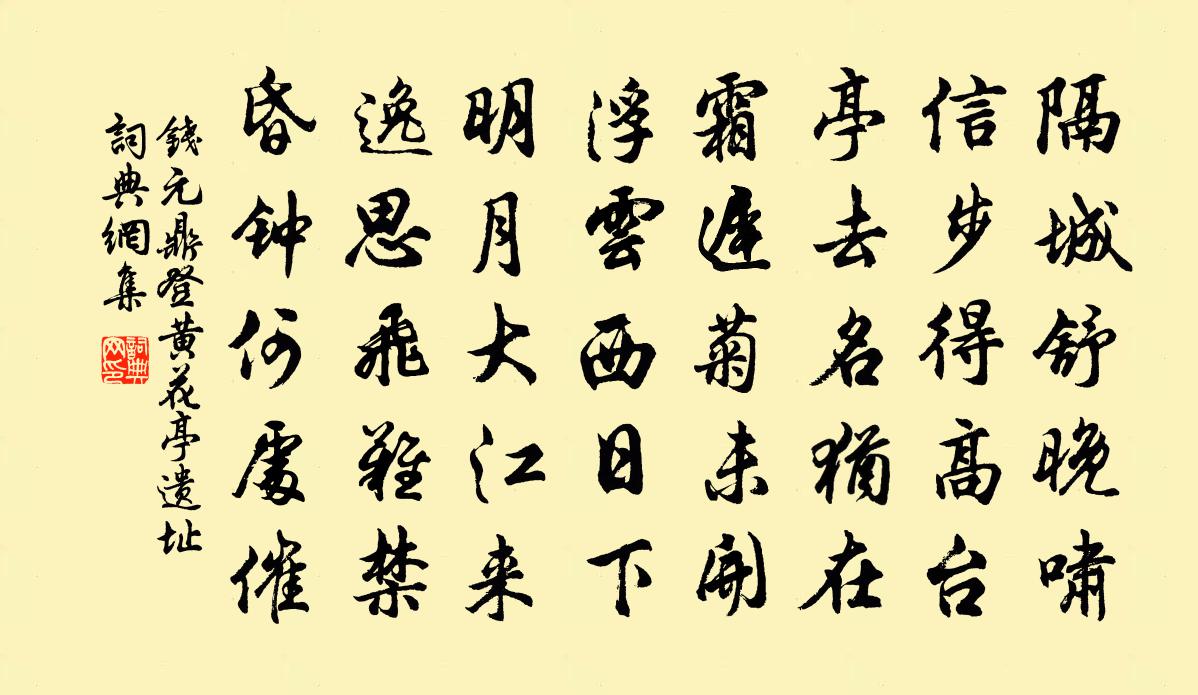 隔城舒晚啸
信步得高台
亭去名犹在
霜遲菊未開
浮雲西日下
明月大江来
逸思飛難禁
昏钟何處催
錢元鼎登黄花亭遗址
詞典網集
詞典
网印